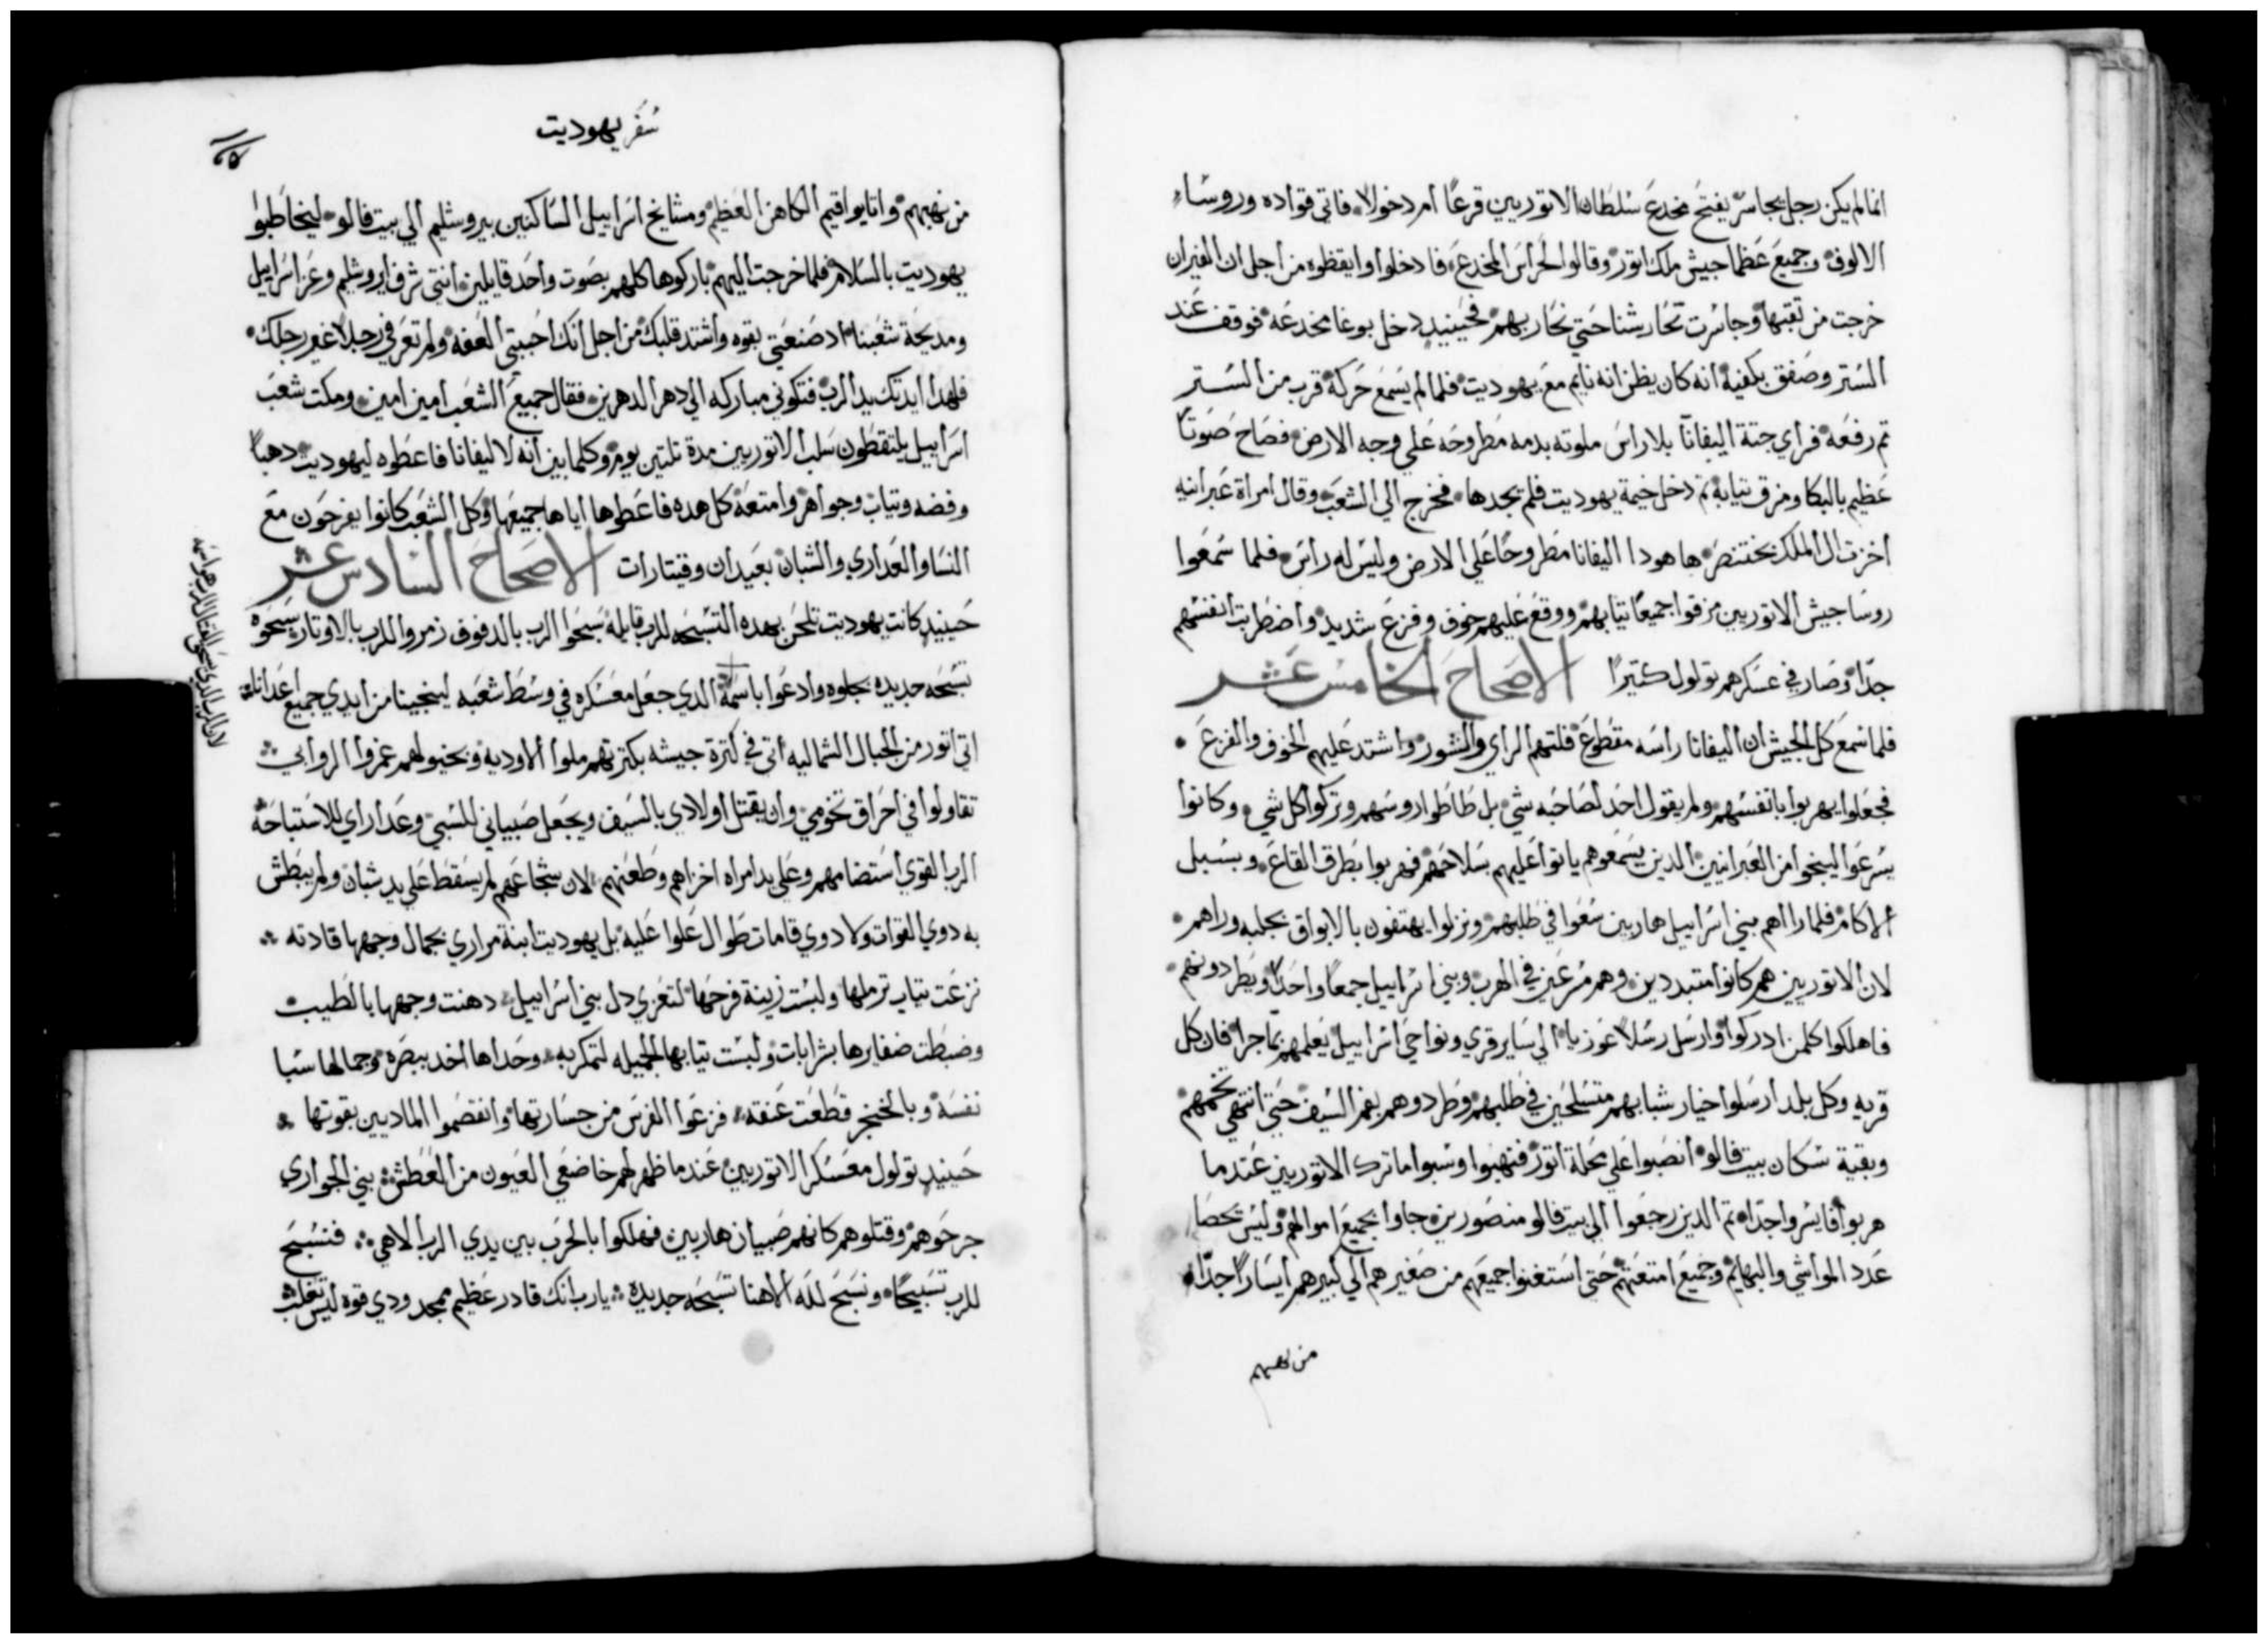 انما لم يكن رجل يجاسر يفتح مخدع سلطان الاتوريين قرعًا ام دخولًا فاتي قواده وروساء
الالوف وجميع عظما جيش ملك اتور وقالوا لحراس المخدع فادخلوا وايقظوه من اجل ان الفيران
خرجت من تقبتها وجاسرت تحارشنا حتي نحاربهم فحينيدٍ دخل بوغا مخدعه فوقف عند
الستر وصفق بكفيه انه كان يظن انه نايم مع يهوديت فلما لم يسمع حركة قرب من الستر
تم رفعه فراي جتة اليفانا بلا راس ملوته بدمه مطروحه علي وجه الارض فصاح صوتًا
عظيم بالبكا ومزق تيابه تم دخل خيمة يهوديت فلم يجدها فخرج الي الشعب وقال امراة عبرانيه
اخزت ال الملك بختنصر ها هودا اليفانا مطروحًا علي الارض وليس له راس فلما سمعوا
روسا جيش الاتوريين مزقوا جميعًا تيابهم ووقع عليهم خوف وفزع شديد واضطربت انفسهم
جدًا وصار في عسكرهم تولول كتيرًا الاصحاح الخامس عشر
فلما سمع كل الجيش ان اليفانا راسه مقطوع فلتهم الراي والشور واشتد عليهم الخوف والفزع
فجعلوا يهربوا بانفسهم ولم يقول احد لصاحبه شي بل طاطوا روسهم وتركوا كل شي وكانوا
يسرعوا لينجوا من العبرانيين الدين يسمعوهم ياتوا عليهم بسلاحهم فهربوا بطرق القاع وبسبل
الاكام فلما راهم بني اسراييل هاربين سعوا في طلبهم ونزلوا يهتفون بالابواق بجلبه وراهم
لان الاتوريين هم كانوا متبددين وهم مسرعين في الهرب وبني اسراييل جمعًا واحدًا ويطردونهم
فاهلكوا كلمن ادركوا وارسل رسلًا عوزيا الي ساير قري ونواحي اسراييل يعلمهم بما جرا فان كل
قريه وكل بلد ارسلوا خيار شبابهم متسلحين في طلبهم وطردوهم بفم السيف حتي انتهي تخمهم
وبقية سكان بيت فالو انصبوا علي محلة اتور فنهبوا وسبوا ما ترك الاتوريين عندما
هربوا فايسروا جدًا تم الدين رجعوا الي بيت فالو منصورين جاوا بجميع اموالهم وليس يحصا
عدد المواشي والبهايم وجميع امتعتهم حتي استغنوا جميعهم من صغيرهم الي كبيرهم ايسارًا جدًا
من نهبهم
سفر يهوديت
من نهبهم وانا يواقيم الكاهن العظيم ومشايخ اسراييل الساكنين بيروشليم الي بيت فالو ليخاطبوا
يهوديت بالسلام فلما خرجت اليهم باركوها كلهم بصوت واحد قايلين انتي شرف ايروشليم وعز اسراييل
ومديحة شعبنا اد صنعتي بقوه واشتد قلبك من اجل انك احببتي العفه ولم تعرفي رجلًا غير رجلك
فلهدا ايدتك يد الرب فتكوني مباركه الي دهر الدهرين فقال جميع الشعب امين امين ومكت شعب
اسراييل يلتقطون سلب الاتوريين مدة تلتين يوم وكلما بين انه لاليفانا فاعطوه ليهوديت دهبًا
وفضه وتياب وجواهر وامتعة كل هده فاعطوها اياها جميعها وكل الشعب كانوا يفرحون مع
النسا والعداري والشبان بعيدان وقيتارات الاصحاح السادس عشر
حينيدٍ كانت يهوديت تلحن بهده التسبحه للرب قايله سبحوا الرب بالدفوف زمروا للرب بالاوتار سبحوه
تسبحه جديده بجلوه وادعوا باسمه الدي جعل معسكره في وسط شعبه لينجينا من ايدي جميع اعدانا
اتي اتور من الجبال الشماليه اتي في كترة جيشه بكترتهم ملوا الاوديه وبخيولهم غمروا الروابي
تقاولوا في احراق تخومي وان يقتل اولادي بالسيف ويجعل صبياني للسبي وعداراي للاستباحه
الرب القوي استضامهم وعلي يد امراه اخزاهم وطعنهم لان شجاعهم لم يسقط علي يد شبان ولم يبطش
به دوي القوات ولا دوي قامات طوال علوا عليه بل يهوديت ابنة مراري بجمال وجهها قادته
نزعت تياب ترملها ولبست زينة فرحها لتعزي دل بني اسراييل دهنت وجهها بالطيب
وضبطت ضفايرها بشرابات ولبست تيابها الجميله لتمكر به وحداها اخد ببصره وجمالها سبا
نفسه وبالخنجر قطعت عنقه فزعوا الفرس من جسارتها وانفضموا الماديين بقوتها
حينيدٍ تولول معسكر الاتوريين عندما ظهر لهم خاضعي العيون من العطش بني الجواري
جرحوهم وقتلوهم كانهم صبيان هاربين فهلكوا بالحرب بين يدي الرب الاهي فنسبح
للرب تسبيحًا ونسبح لله الاهنا تسبحه جديده يا رب انك قادر عظيم ممجد ودي قوه ليس تغلب
لان الرب الدي يسحق القتال الرب هو اسمه